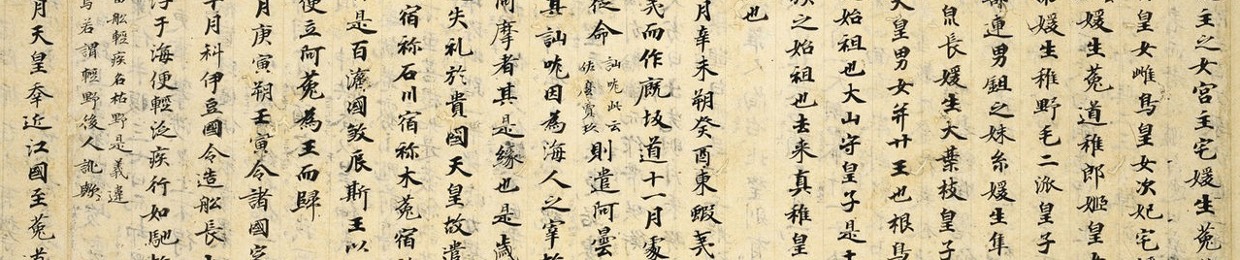 主之女宮主宅媛生菟
皇女雌鳥皇女次妃宅
媛生菟道稚郎姬皇女
弟媛生稚野毛二派皇子
連男鉏之妹糸媛生隼
泉長媛生大葉枝皇子
天皇男女并廿王也根鳥
始祖也大山守皇子是
族之始祖也去来真稚皇
也
月辛未朔癸酉東蝦夷
夷而作厩坂道十一月處
從命
訕哤此云
佐麼賣玖
則遣阿曇
其訕哤因為海人之宰
摩者其是緣也是歲
失礼於貴國天皇故遣
宿祢石川宿祢木菟宿
是百濟國敦辰斯王以
便立阿菟為王而歸
月庚寅朔壬寅令諸國
十月科伊豆國令造舩長
浮于海便輕泛疾行如馳
舩輕疾名枯野是義違
若謂輕野後人訛歟
月天皇幸近江國至菟